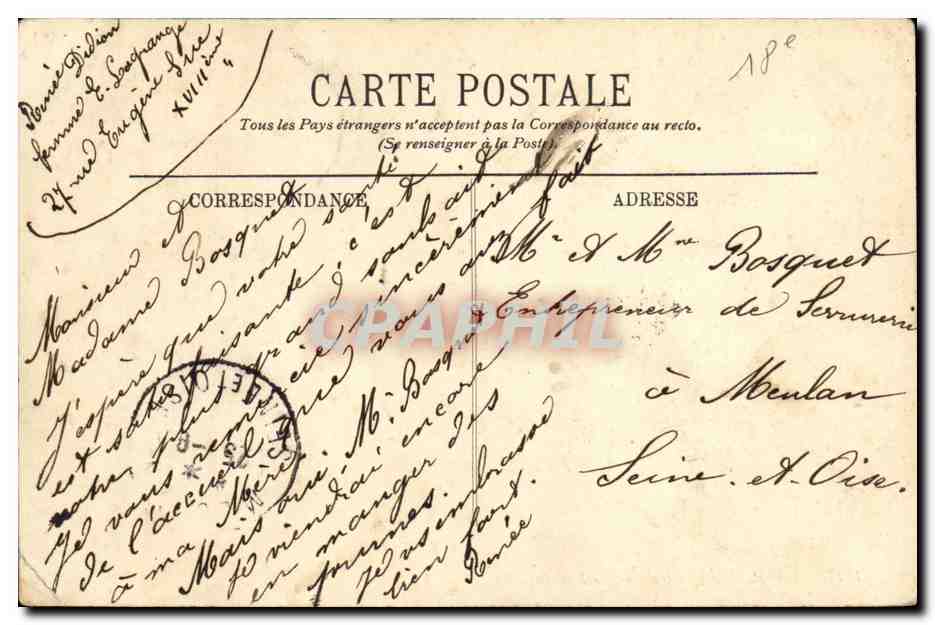 Renée Didion
femme E. Lagrange
27 rue Eugène Sue
XVIIIème
18e
CARTE POSTALE
Tous les Pays étrangers n'acceptent pas la Correspondance au recto.
(Se renseigner à la Poste).
CORRESPONDANCE
ADRESSE
Monsieur et
Madame Bosquet
J'espère que votre santé
est satisfaisante, c'est
notre plus grand souhait
Je vous remercie sincèrement
de l'accueil que vous avez fait
à ma Mère
Mais oui Mr Bosquet
je viendrai encore
en manger des
prunes.
Je vs embrasse
bien fort.
Renée
Mr et Mme Bosquet
Entrepreneur de Serrurerie
à Meulan
Seine-et-Oise.
CPAPHIL